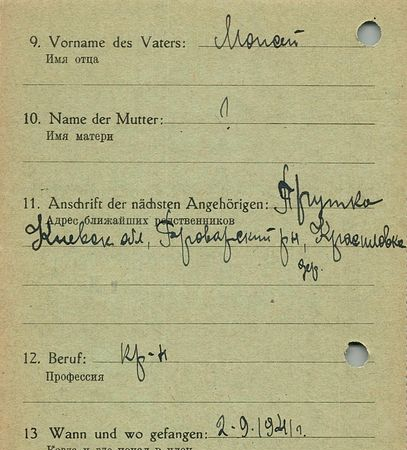 9. Vorname des Vaters: Мопсей
Имя отца
10. Name der Mutter: !
Имя матери
11. Anschrift der nächsten Angehörigen: Прутко
Адрес ближайших родственников
Киевск обл, Броварский рн, Красиловка
дер.
12. Beruf: кр-н
Профессия
13 Wann und wo gefangen: 2-9.1941г.
Когда и где попал в плен